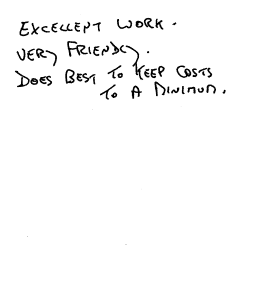 EXCELLENT WORK.
VERY FRIENDLY.
DOES BEST TO KEEP COSTS
TO A MINIMUM.